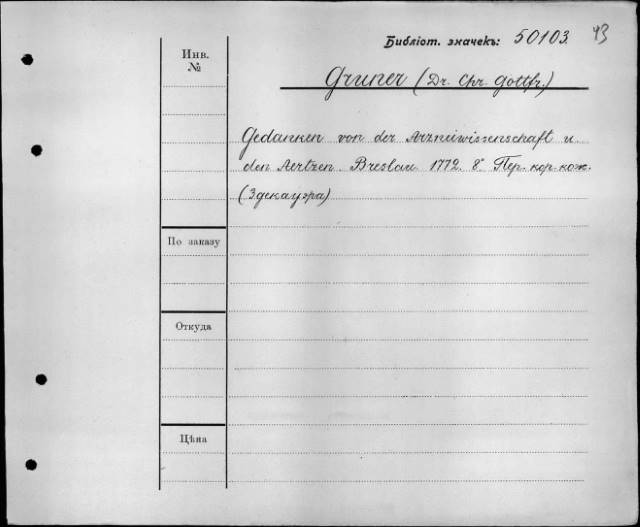 Библіот. значекъ: 50103. 43
Инв. №
Gruner (Dr. Chr. Gottfr.)
Gedanken von der Arzneiwissenschaft u.
den Aertzen. Breslau 1772. 8° Пер. кор. кож.
(3 декауэра)
По заказу
Откуда
Цѣна